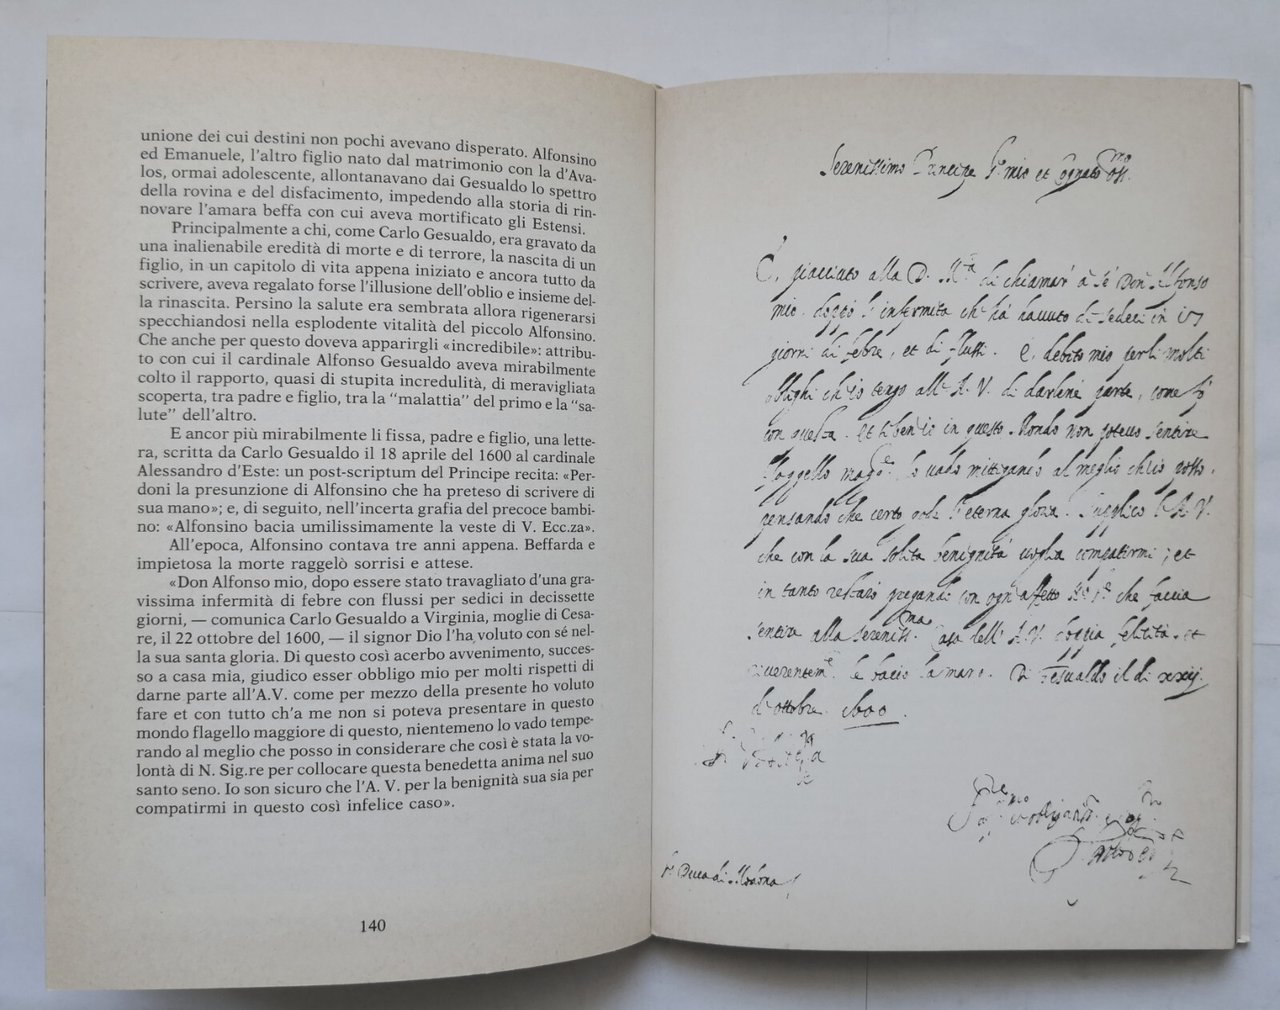 unione dei cui destini non pochi avevano disperato. Alfonsino
ed Emanuele, l'altro figlio nato dal matrimonio con la d'Ava-
los, ormai adolescente, allontanavano dai Gesualdo lo spettro
della rovina e del disfacimento, impedendo alla storia di rin-
novare l'amara beffa con cui aveva mortificato gli Estensi.
Principalmente a chi, come Carlo Gesualdo, era gravato da
una inalienabile eredità di morte e di terrore, la nascita di un
figlio, in un capitolo di vita appena iniziato e ancora tutto da
scrivere, aveva regalato forse l'illusione dell'oblio e insieme del-
la rinascita. Persino la salute era sembrata allora rigenerarsi
specchiandosi nella esplodente vitalità del piccolo Alfonsino.
Che anche per questo doveva apparirgli «incredibile»: attribu-
to con cui il cardinale Alfonso Gesualdo aveva mirabilmente
colto il rapporto, quasi di stupita incredulità, di meravigliata
scoperta, tra padre e figlio, tra la “malattia” del primo e la “sa-
lute” dell'altro.
E ancor più mirabilmente li fissa, padre e figlio, una lette-
ra, scritta da Carlo Gesualdo il 18 aprile del 1600 al cardinale
Alessandro d'Este: un post-scriptum del Principe recita: «Per-
doni la presunzione di Alfonsino che ha preteso di scrivere di
sua mano»; e, di seguito, nell'incerta grafia del precoce bambi-
no: «Alfonsino bacia umilissimamente la veste di V. Ecc.za».
All'epoca, Alfonsino contava tre anni appena. Beffarda e
impietosa la morte raggelò sorrisi e attese.
«Don Alfonso mio, dopo essere stato travagliato d'una gra-
vissima infermità di febre con flussi per sedici in decissette
giorni, — comunica Carlo Gesualdo a Virginia, moglie di Cesa-
re, il 22 ottobre del 1600, — il signor Dio l'ha voluto con sé nel-
la sua santa gloria. Di questo così acerbo avvenimento, succes-
so a casa mia, giudico esser obbligo mio per molti rispetti di
darne parte all'A.V. come per mezzo della presente ho voluto
fare et con tutto ch'a me non si poteva presentare in questo
mondo flagello maggiore di questo, nientemeno lo vado tempe-
rando al meglio che posso in considerare che così è stata la vo-
lontà di N. Sig.re per collocare questa benedetta anima nel suo
santo seno. Io son sicuro che l'A. V. per la benignità sua sia per
compatirmi in questo così infelice caso».
140
Serenissimo Principe S.r mio et Cognato oss.mo
È piaciuto alla D. M.tà di chiamar à sé Don Alfonso
mio, doppo l'infermità ch'hà havuto di sedeci in 17
giorni di febre, et di flussi. È debito mio per li molti
oblighi ch'io tengo all'A. V. di darlene parte, come fò
con questa. et se ben io in questo Mondo non potevo sentire
flaggello magg.re lo vado mitigando al meglio ch'io posso,
pensando che certo gode l'eterna gloria. Supplico l'A. V.
che con la sua solita benignità voglia compatirmi; et
in tanto restarò pregando con ogn'affetto N. S.re che faccia
sentire alla Sereniss.ma Casa dell'A. V. doppia felicità. et
riverentem.te le bacio la mano. Di Gesualdo il dì xxij
d'ottobre 1600.
S.r Duca di Modona